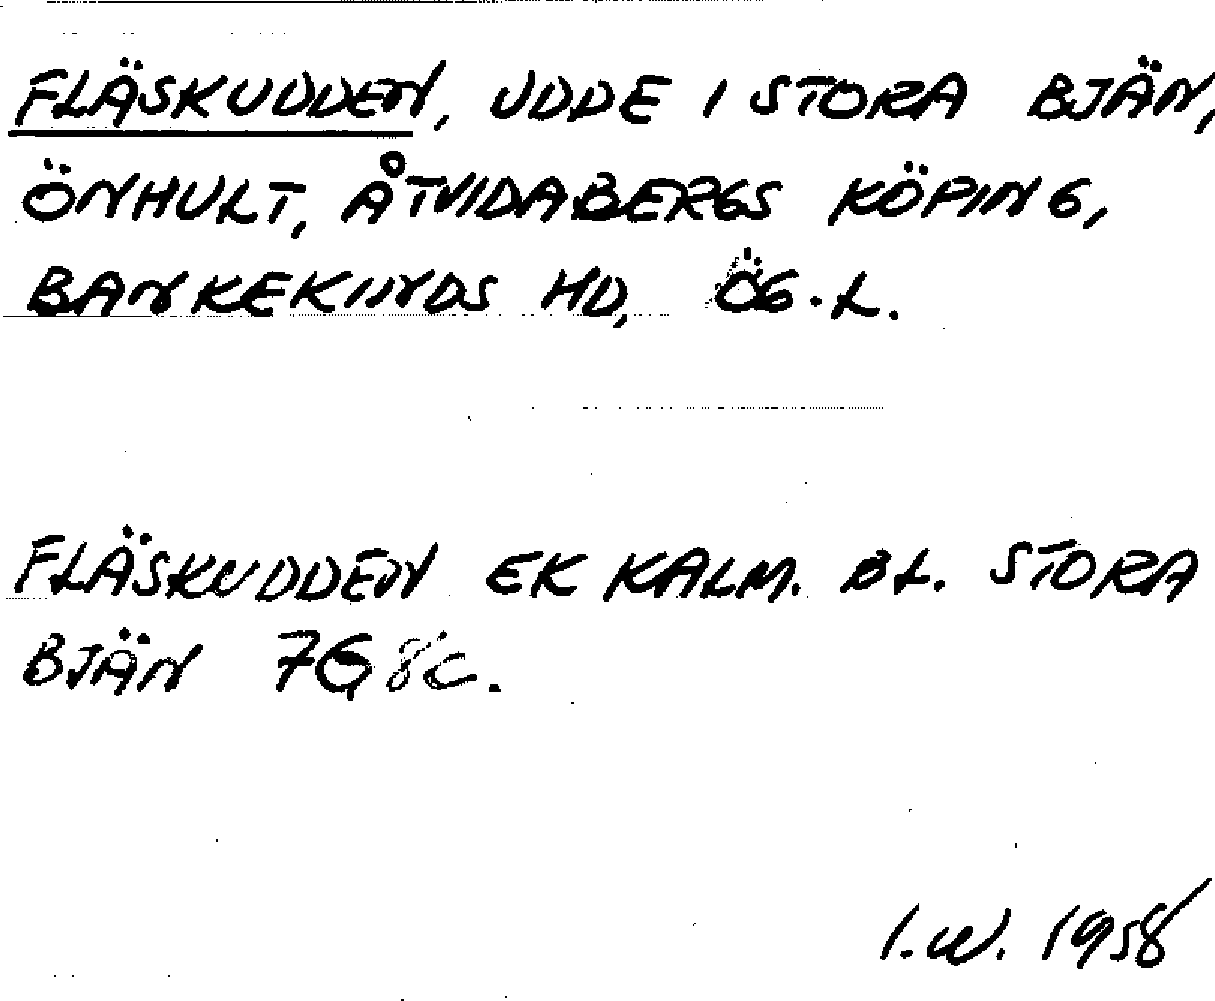 FLÄSKUDDEN, UDDE I STORA BJÄN,
ÖNHULT, ÅTVIDABERGS KÖPING,
BANKEKINDS HD, ÖG.L.
FLÄSKUDDEN EK KALM. BL. STORA
BJÄN 7G 8c.
I.W. 1958